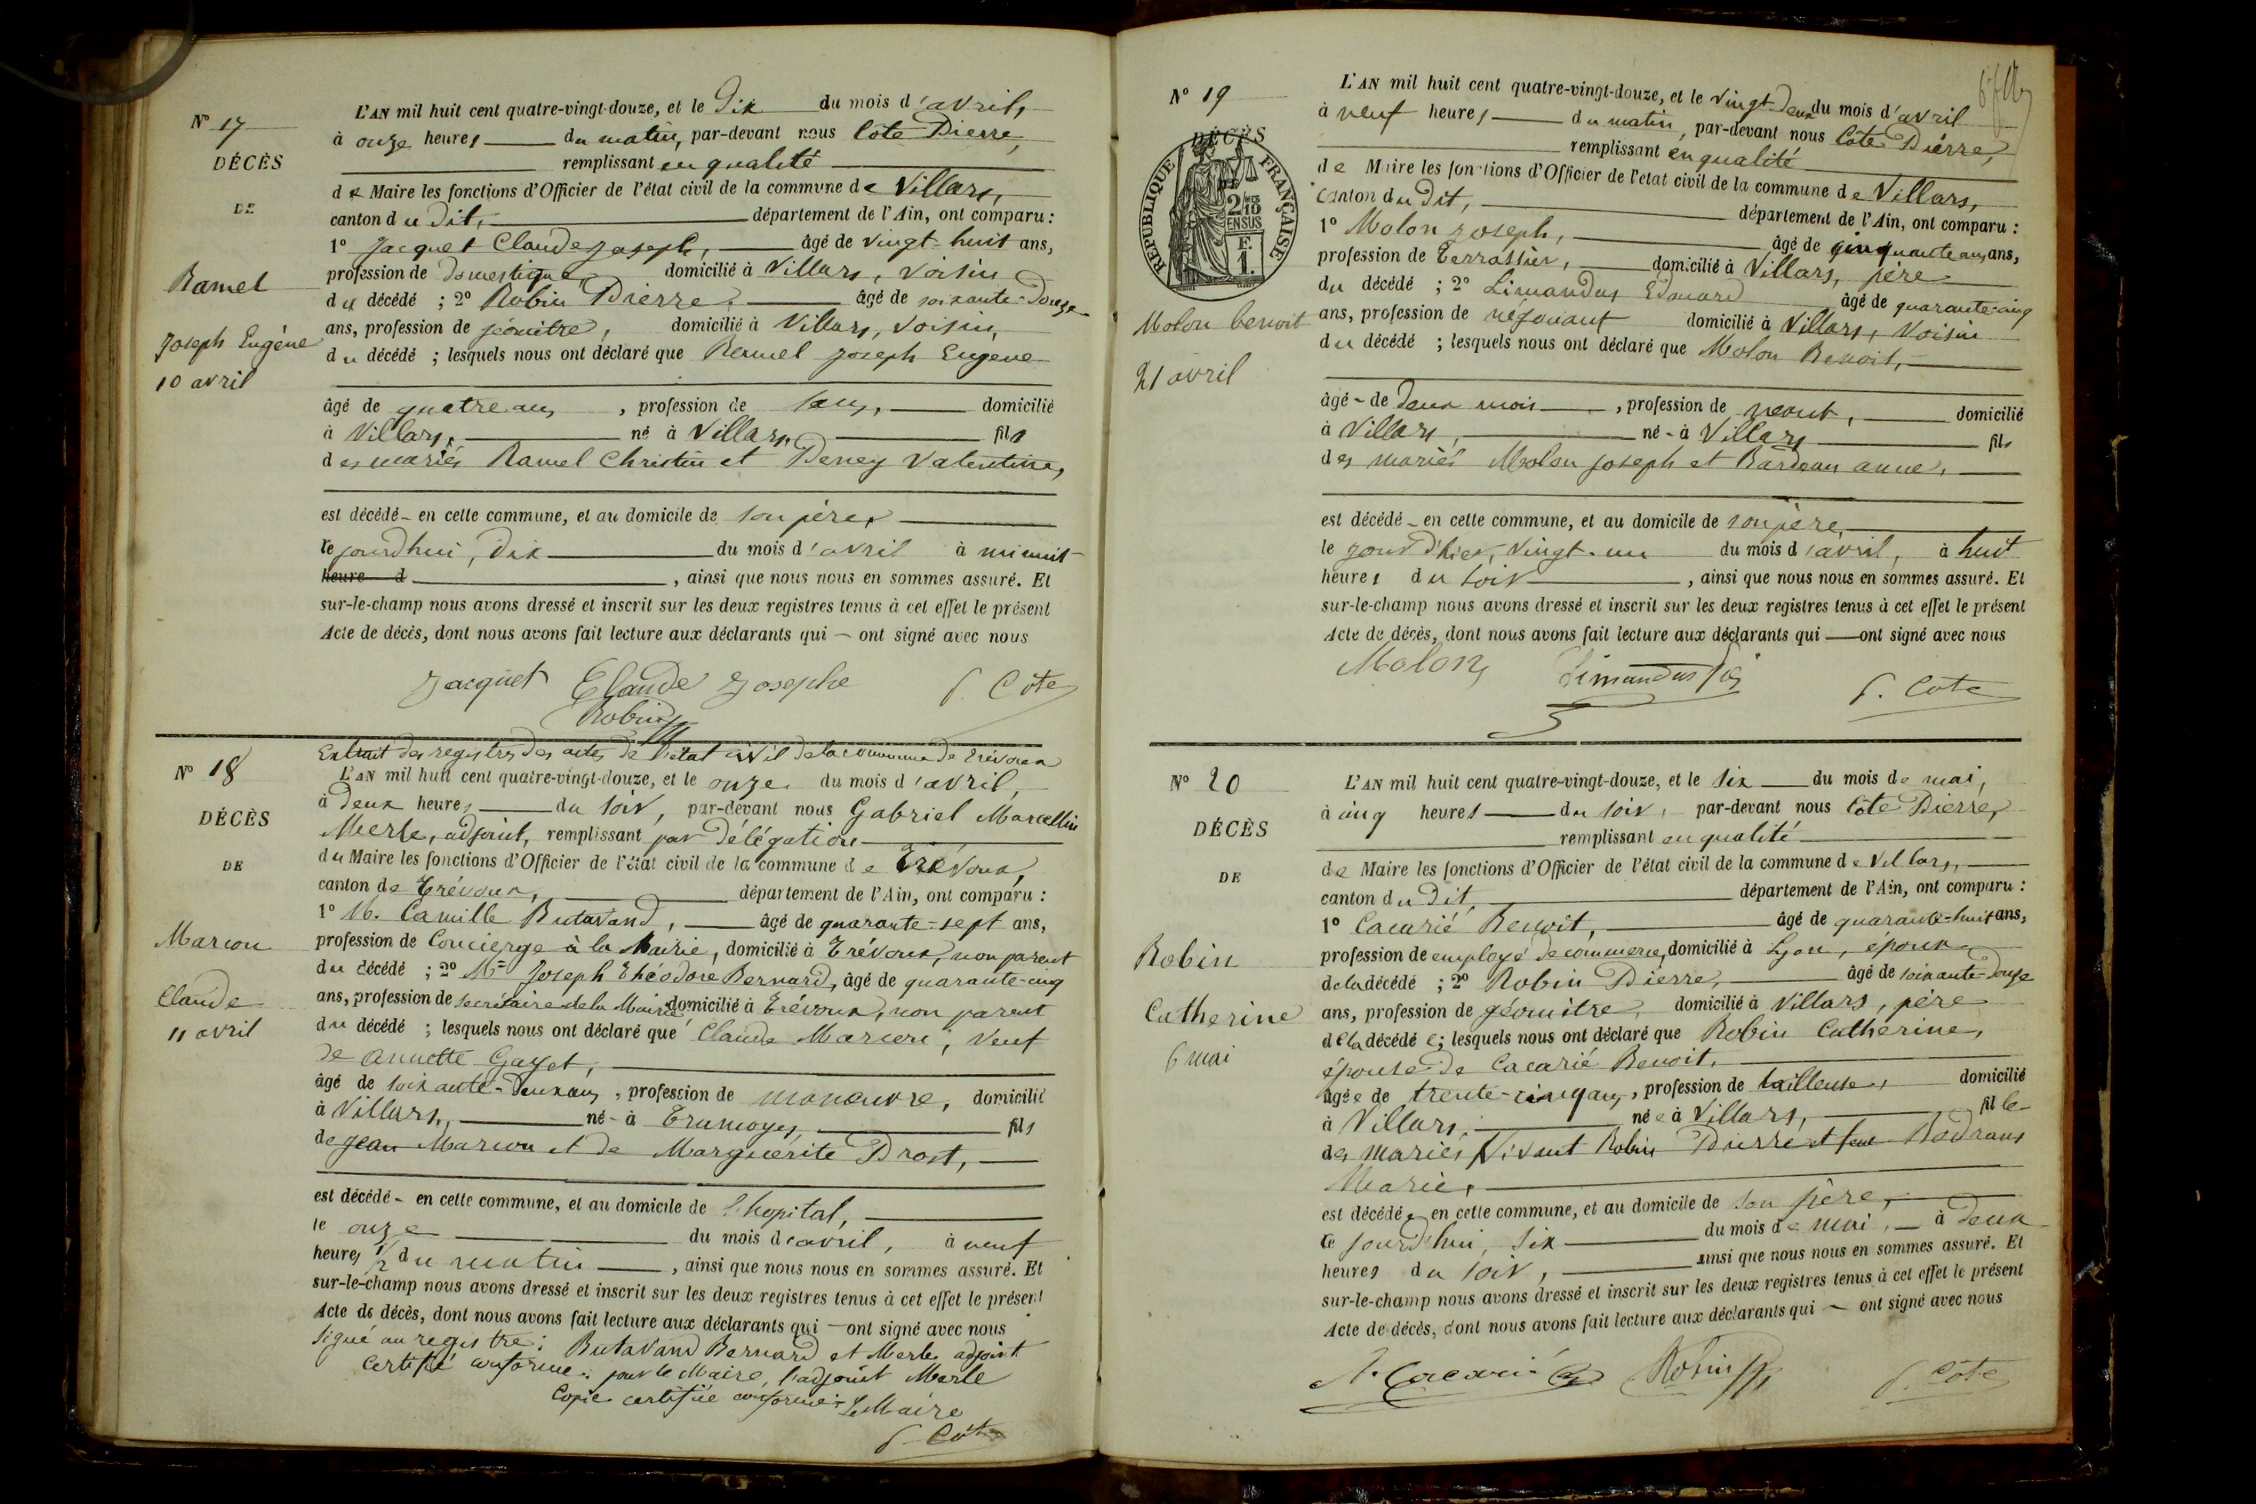 N° 17
DÉCÈS
DE
Ramel
Joseph Eugène
10 avril
L'AN mil huit cent quatre-vingt-douze, et le Dix du mois d'avril,
à onze heures du matin, par-devant nous Côte Pierre,
remplissant en qualité
de Maire les fonctions d'Officier de l'état civil de la commune de Villars,
canton du Dit, département de l'Ain, ont comparu :
1° Jacquet Claude Joseph, âgé de vingt-huit ans,
profession de domestique domicilié à Villars, voisin
du décédé ; 2° Robin Pierre, âgé de soixante-Douze
ans, profession de géomètre, domicilié à Villars, voisin,
du décédé ; lesquels nous ont déclaré que Ramel Joseph Eugene
âgé de quatre ans, profession de sans, domicilié
à Villars, né à Villars, fils
des mariés Ramel Christin et Deney Valentine,
est décédé - en cette commune, et au domicile de son père,
le jourd'hui, Dix du mois d'avril à minuit
heure d , ainsi que nous nous en sommes assuré. Et
sur-le-champ nous avons dressé et inscrit sur les deux registres tenus à cet effet le présent
Acte de décès, dont nous avons fait lecture aux déclarants qui - ont signé avec nous
Jacquet Claude Josephe P. Côte
Robin
N° 18
DÉCÈS
DE
Marcon
Claude
11 avril
Extrait des registres des actes de l'état civil de la commune de Trévoux
L'AN mil huit cent quatre-vingt-douze, et le onze du mois d'avril,
à Deux heures du soir, par-devant nous Gabriel Marcellin
Merle, adjoint, remplissant par Délégation
du Maire les fonctions d'Officier de l'état civil de la commune de Trévoux,
canton de Trévoux, département de l'Ain, ont comparu :
1° M. Camille Butavand, âgé de quarante-sept ans,
profession de Concierge à la Mairie, domicilié à Trévoux, non parent
du décédé ; 2° Mr Joseph Théodore Bernard, âgé de quarante-cinq
ans, profession de secrétaire de la Mairie domicilié à Trévoux, non parent
du décédé ; lesquels nous ont déclaré que Claude Marcon, veuf
de Annette Gayet,
âgé de soixante-Deux ans, profession de manœuvre, domicilié
à Villars, né - à Tramoyes, fils
de Jean Marcon et de Marguerite Drost,
est décédé - en cette commune, et au domicile de l'hopital,
le onze du mois d'avril, à neuf
heures 1/2 du matin , ainsi que nous nous en sommes assuré. Et
sur-le-champ nous avons dressé et inscrit sur les deux registres tenus à cet effet le présent
Acte de décès, dont nous avons fait lecture aux déclarants qui - ont signé avec nous
signé au registre : Butavand Bernard et Merle adjoint
certifié conforme : pour le Maire, l'adjoint Merle
Copie certifiée conforme : Le Maire
P. Côte
N° 19
DÉCÈS
RÉPUBLIQUE FRANÇAISE
2/10 EN SUS
F. 1.
Molon benoit
21 avril
L'AN mil huit cent quatre-vingt-douze, et le vingt-Deux du mois d'avril
à neuf heures du matin, par-devant nous Côte Pierre,
remplissant en qualité
de Maire les fonctions d'Officier de l'état civil de la commune de Villars,
canton du Dit, département de l'Ain, ont comparu :
1° Molon Joseph, âgé de cinquante ans ans,
profession de Terrassier, domicilié à Villars, père
du décédé ; 2° Limandas Edouard âgé de quarante-cinq
ans, profession de négociant domicilié à Villars, Voisin
du décédé ; lesquels nous ont déclaré que Molon Benoit,
âgé - de Deux mois , profession de néant, domicilié
à Villars, né - à Villars fils
des mariés Molon Joseph et Bardeau anne,
est décédé - en cette commune, et au domicile de son père
le jour d'hier, vingt-un du mois d'avril, à huit
heures du soir , ainsi que nous nous en sommes assuré. Et
sur-le-champ nous avons dressé et inscrit sur les deux registres tenus à cet effet le présent
Acte de décès, dont nous avons fait lecture aux déclarants qui ont signé avec nous
Molon Limandas P. Côte
N° 20
DÉCÈS
DE
Robin
Catherine
6 mai
L'AN mil huit cent quatre-vingt-douze, et le six du mois de mai,
à cinq heures du soir, par-devant nous Côte Pierre,
remplissant en qualité
de Maire les fonctions d'Officier de l'état civil de la commune de Villars,
canton du Dit, département de l'Ain, ont comparu :
1° Cacarié Benoit, âgé de quarante-huit ans,
profession de employé de commerce, domicilié à Lyon, époux
de la décédé ; 2° Robin Pierre, âgé de soixante-Douze
ans, profession de géomètre, domicilié à Villars, père
de la décédée ; lesquels nous ont déclaré que Robin Catherine,
épouse de Cacarié Benoit,
âgée de trente-cinq ans, profession de tailleuse, domicilié
à Villars, née à Villars, fille
des mariés Vivant Robin Pierre et feue Bodrans
Marie,
est décédée en cette commune, et au domicile de son père,
le jourd'hui, six du mois de mai, à Deux
heures du soir, ainsi que nous nous en sommes assuré. Et
sur-le-champ nous avons dressé et inscrit sur les deux registres tenus à cet effet le présent
Acte de décès, dont nous avons fait lecture aux déclarants qui - ont signé avec nous
Cacarié Robin P. Côte